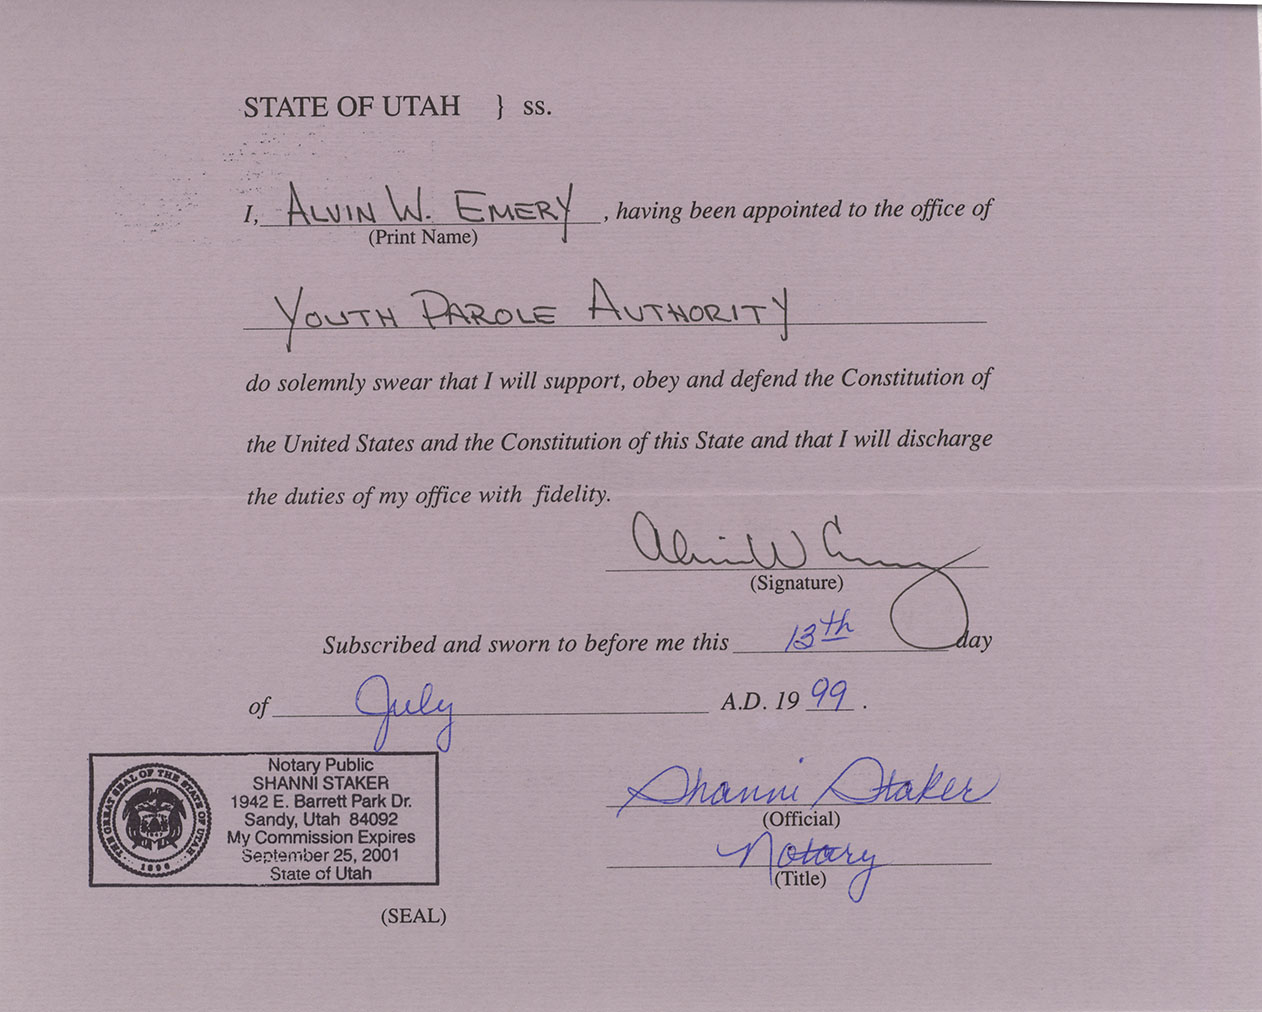 STATE OF UTAH } ss.
I, ALVIN W. EMERY, having been appointed to the office of
(Print Name)
YOUTH PAROLE AUTHORITY
do solemnly swear that I will support, obey and defend the Constitution of
the United States and the Constitution of this State and that I will discharge
the duties of my office with fidelity.
Alvin W Emery
(Signature)
Subscribed and sworn to before me this 13th day
of July A.D. 1999.
Notary Public
SHANNI STAKER
1942 E. Barrett Park Dr.
Sandy, Utah 84092
My Commission Expires
September 25, 2001
State of Utah
THE GREAT SEAL OF THE STATE OF UTAH
1896
(SEAL)
Shanni Staker
(Official)
Notary
(Title)